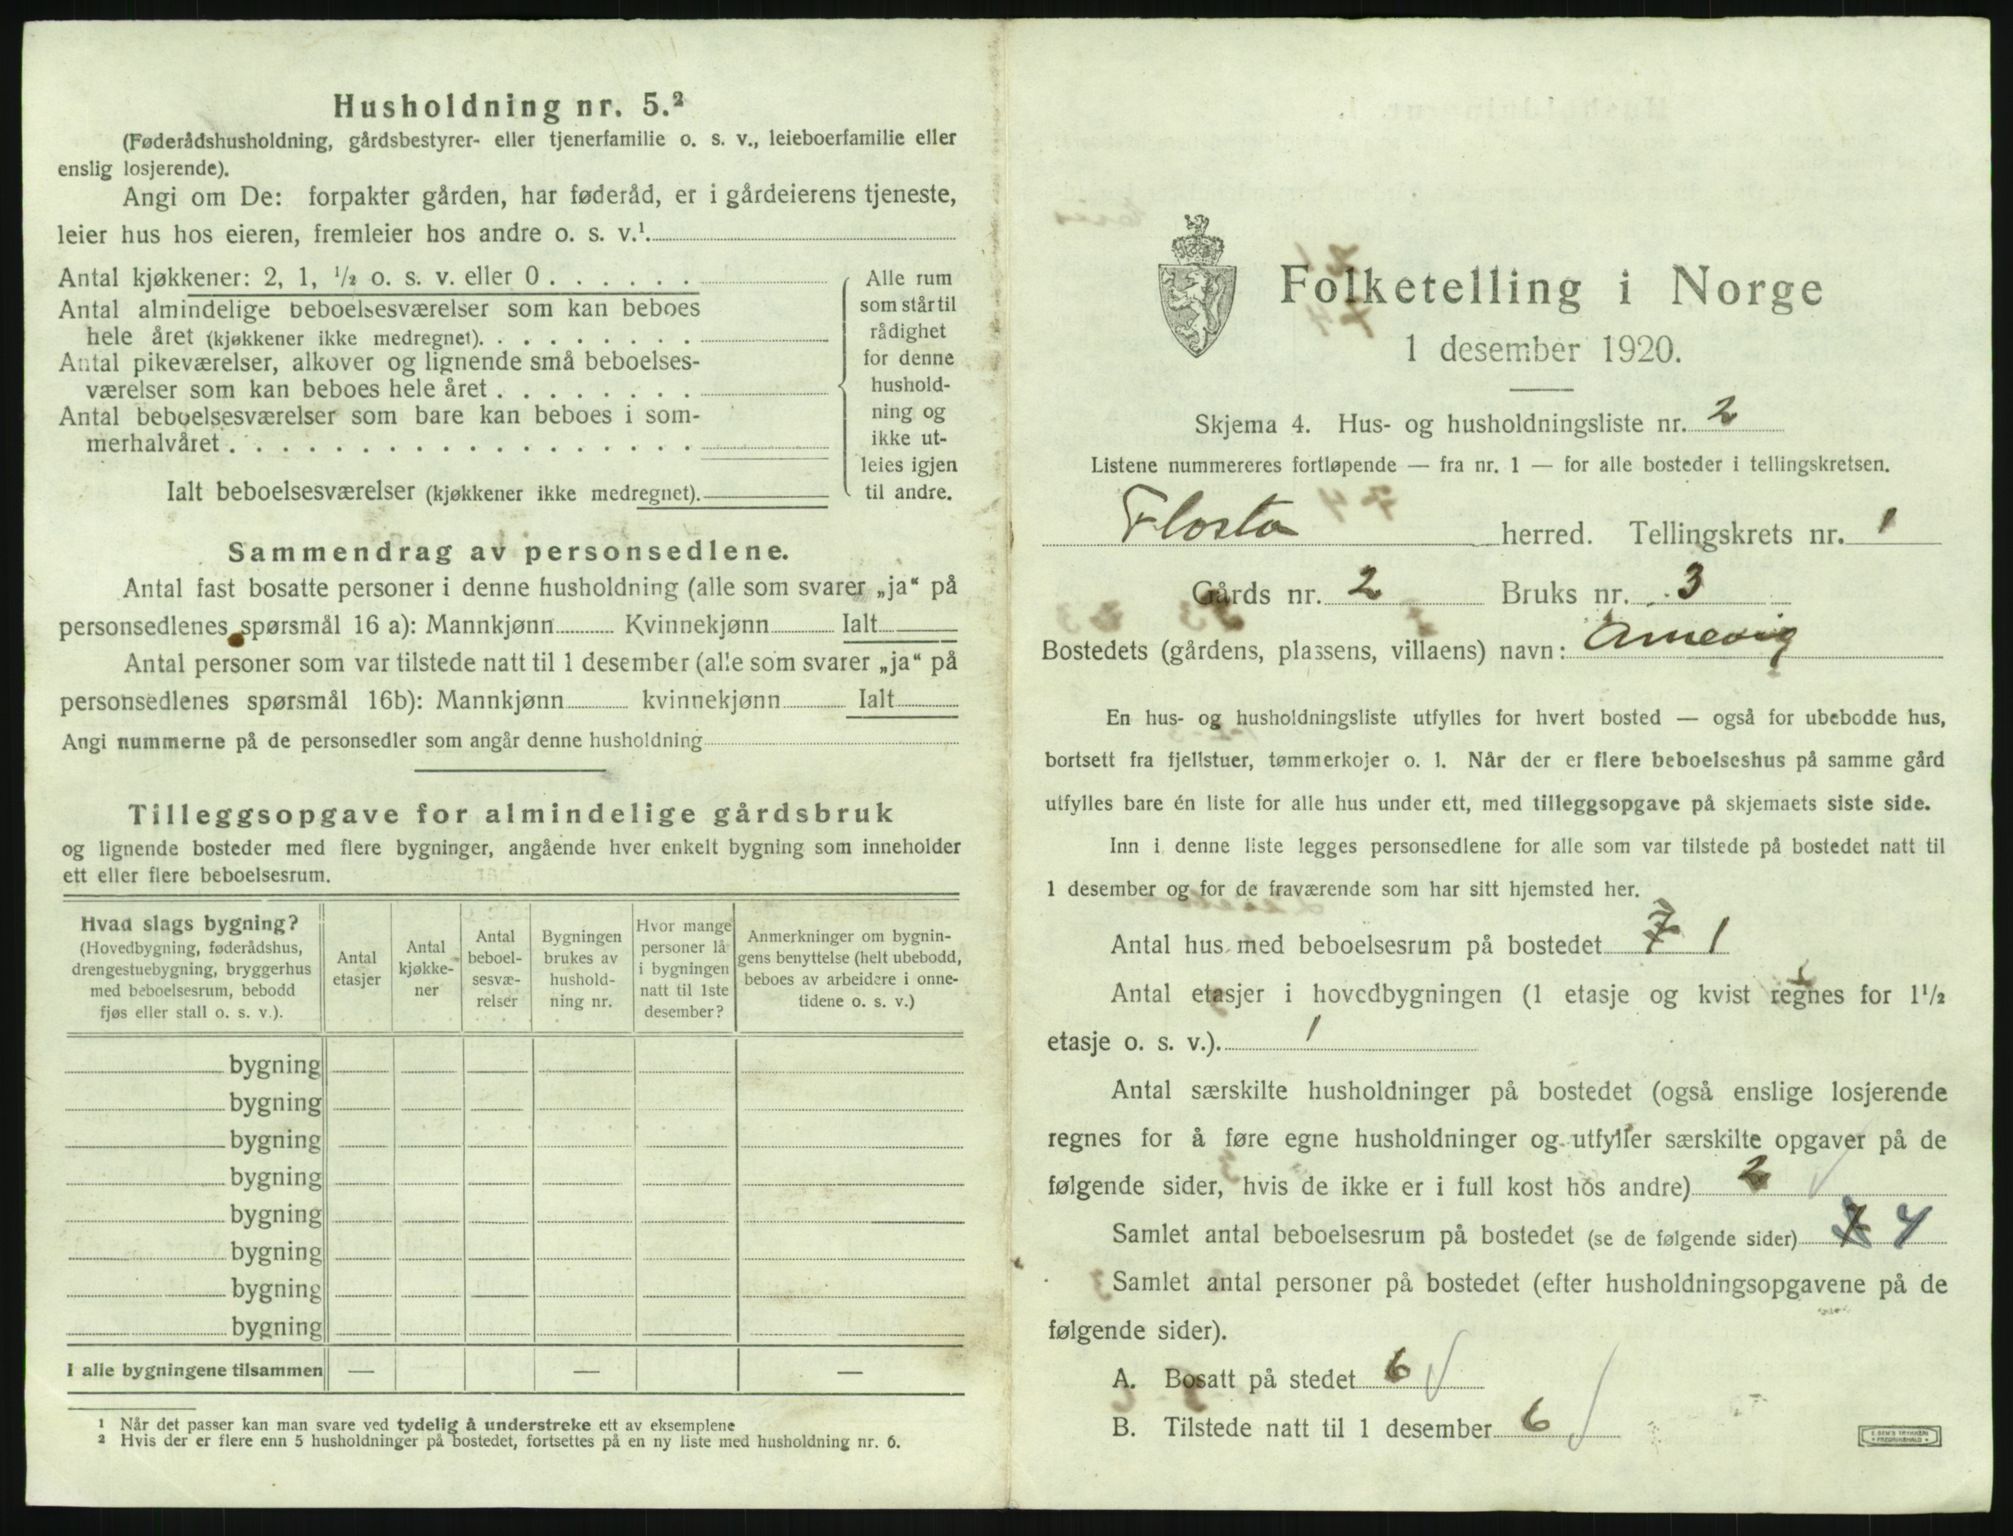 Husholdning nr. 5.²
(Føderådshusholdning, gårdsbestyrer- eller tjenerfamilie o. s. v., leieboerfamilie eller
enslig losjerende).
Angi om De: forpakter gården, har føderåd, er i gårdeierens tjeneste,
leier hus hos eieren, fremleier hos andre o. s. v.¹
Antal kjøkkener: 2, 1, ½ o. s. v. eller 0 . . . . . .
Antal almindelige beboelsesværelser som kan beboes
hele året (kjøkkener ikke medregnet). . . . . . . . .
Antal pikeværelser, alkover og lignende små beboelses-
værelser som kan beboes hele året . . . . . . . .
Antal beboelsesværelser som bare kan beboes i som-
merhalvåret . . . . . . . . . . . . . . . . . .
Ialt beboelsesværelser (kjøkkener ikke medregnet).
Alle rum
som står til
rådighet
for denne
hushold-
ning og
ikke ut-
leies igjen
til andre.
Sammendrag av personsedlene.
Antal fast bosatte personer i denne husholdning (alle som svarer „ja“ på
personsedlenes spørsmål 16 a): Mannkjønn Kvinnekjønn Ialt
Antal personer som var tilstede natt til 1 desember (alle som svarer „ja“ på
personsedlenes spørsmål 16b): Mannkjønn kvinnekjønn Ialt
Angi nummerne på de personsedler som angår denne husholdning
Tilleggsopgave for almindelige gårdsbruk
og lignende bosteder med flere bygninger, angående hver enkelt bygning som inneholder
ett eller flere beboelsesrum.
Hvad slags bygning?
(Hovedbygning, føderådshus,
drengestuebygning, bryggerhus
med beboelsesrum, bebodd
fjøs eller stall o. s. v.).
Antal
etasjer
Antal
kjøkke-
ner
Antal
beboel-
sesvæ-
relser
Bygningen
brukes av
hushold-
ning nr.
Hvor mange
personer lå
i bygningen
natt til 1ste
desember?
Anmerkninger om bygnin-
gens benyttelse (helt ubebodd,
beboes av arbeidere i onne-
tidene o. s. v.)
bygning
bygning
bygning
bygning
bygning
bygning
bygning
bygning
I alle bygningene tilsammen — — —
¹ Når det passer kan man svare ved tydelig å understreke ett av eksemplene
² Hvis der er flere enn 5 husholdninger på bostedet, fortsettes på en ny liste med husholdning nr. 6.
Folketelling i Norge
1 desember 1920.
Skjema 4. Hus- og husholdningsliste nr. 2
Listene nummereres fortløpende — fra nr. 1 — for alle bosteder i tellingskretsen.
Flosta herred. Tellingskrets nr. 1
Gårds nr. 2 Bruks nr. 3
Bostedets (gårdens, plassens, villaens) navn: Arnevig
En hus- og husholdningsliste utfylles for hvert bosted — også for ubebodde hus,
bortsett fra fjellstuer, tømmerkojer o. l. Når der er flere beboelseshus på samme gård
utfylles bare én liste for alle hus under ett, med tilleggsopgave på skjemaets siste side.
Inn i denne liste legges personsedlene for alle som var tilstede på bostedet natt til
1 desember og for de fraværende som har sitt hjemsted her.
Antal hus med beboelsesrum på bostedet 7 1
Antal etasjer i hovedbygningen (1 etasje og kvist regnes for 1½
etasje o. s. v.). 1
Antal særskilte husholdninger på bostedet (også enslige losjerende
regnes for å føre egne husholdninger og utfyller særskilte opgaver på de
følgende sider, hvis de ikke er i full kost hos andre) 2
Samlet antal beboelsesrum på bostedet (se de følgende sider) 7 4
Samlet antal personer på bostedet (efter husholdningsopgavene på de
følgende sider).
A. Bosatt på stedet 6
B. Tilstede natt til 1 desember 6